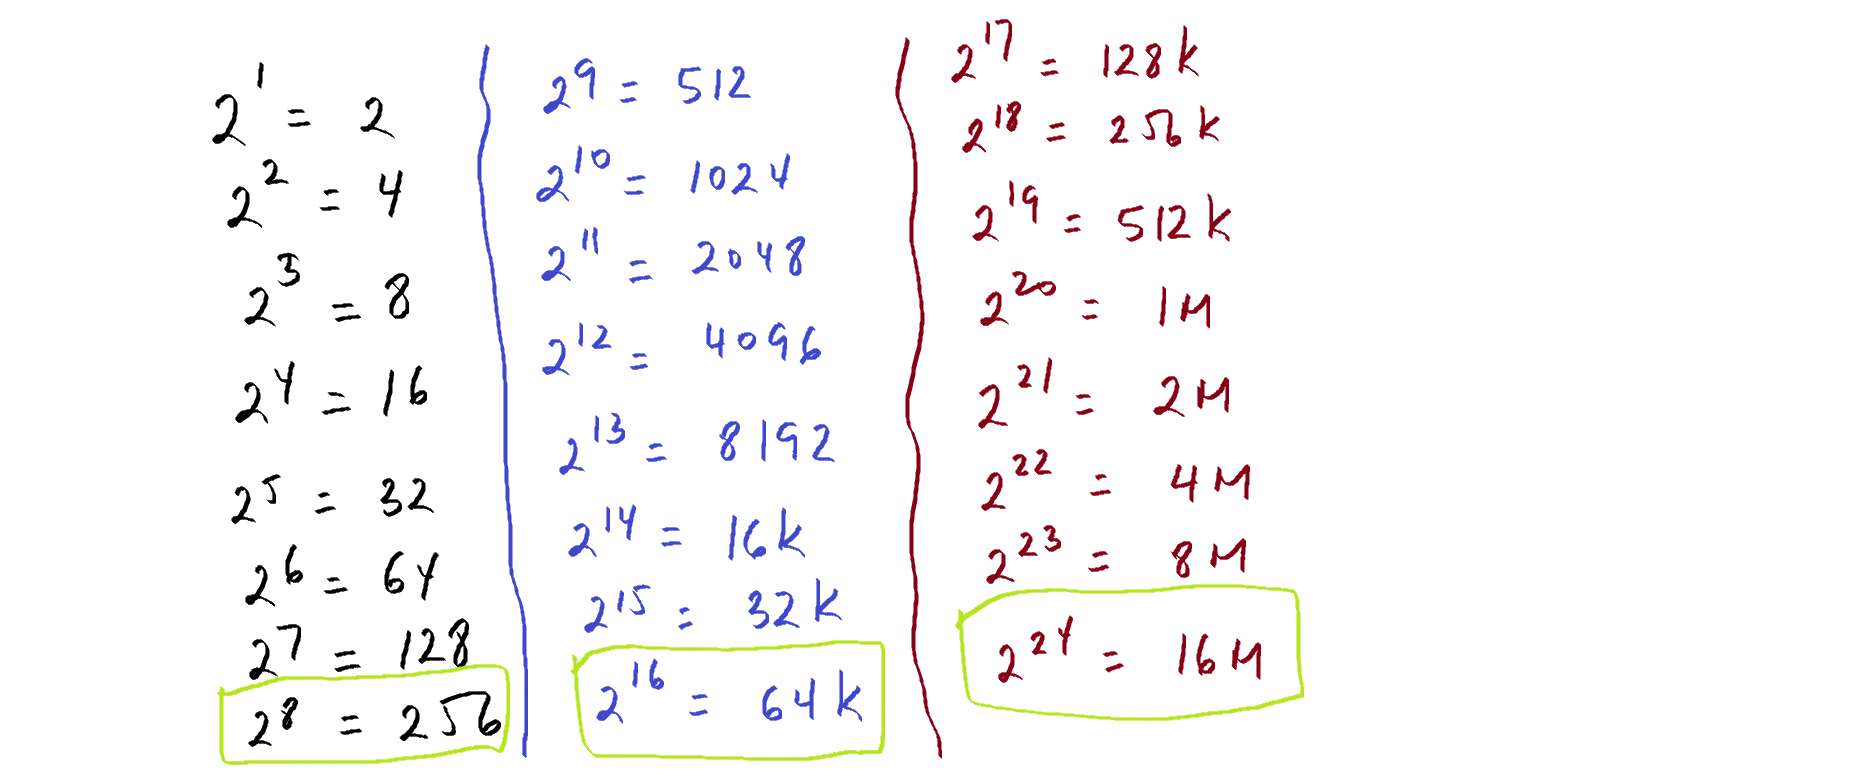 2¹ = 2
2² = 4
2³ = 8
2⁴ = 16
2⁵ = 32
2⁶ = 64
2⁷ = 128
2⁸ = 256
2⁹ = 512
2¹⁰ = 1024
2¹¹ = 2048
2¹² = 4096
2¹³ = 8192
2¹⁴ = 16k
2¹⁵ = 32k
2¹⁶ = 64k
2¹⁷ = 128k
2¹⁸ = 256k
2¹⁹ = 512k
2²⁰ = 1M
2²¹ = 2M
2²² = 4M
2²³ = 8M
2²⁴ = 16M